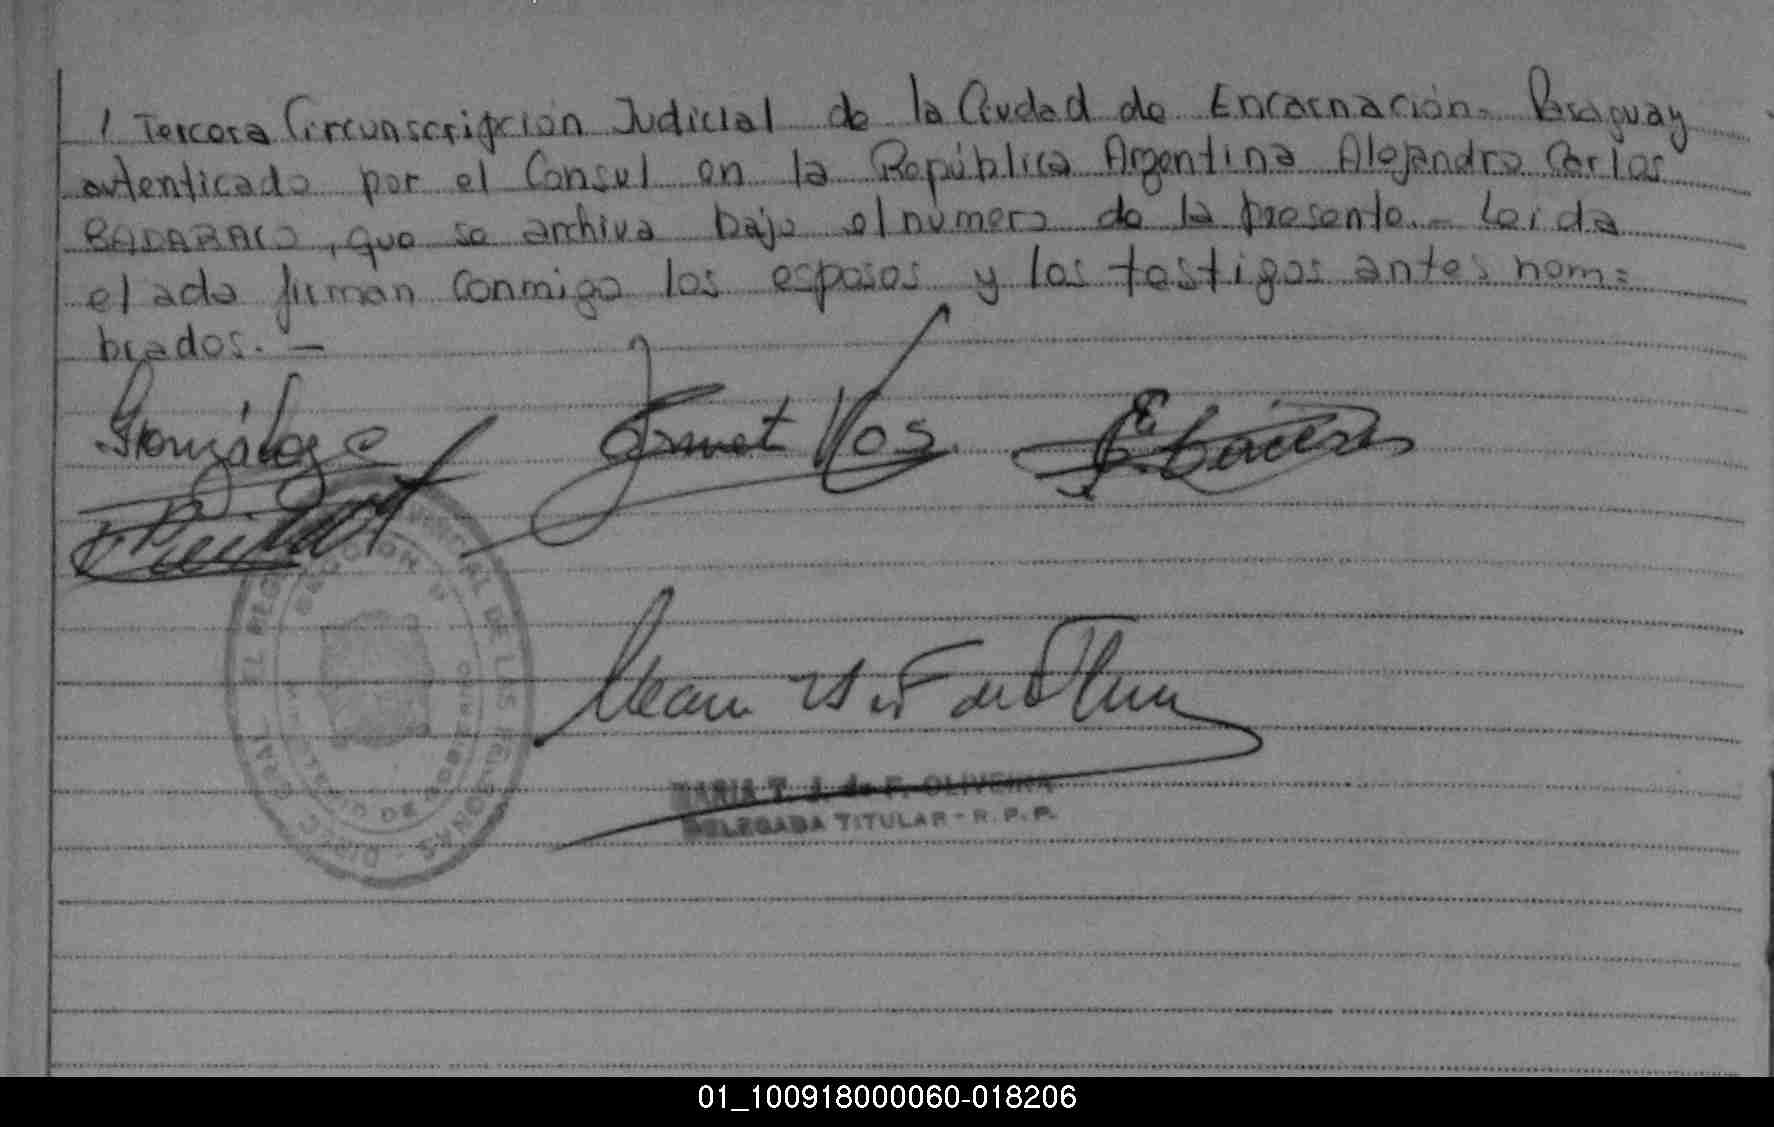 / Tercera Circunscripción Judicial de la Ciudad de Encarnación - Paraguay
autenticado por el Consul en la República Argentina Alejandro Carlos
BADARACO, que se archiva bajo el número de la presente.- Leída
el acta firman conmigo los esposos y los testigos antes nom=
brados. —
González
Ernest Vos
MARIA T. J. de F. OLIVEIRA
DELEGADA TITULAR - R. P. P.
01_100918000060-018206